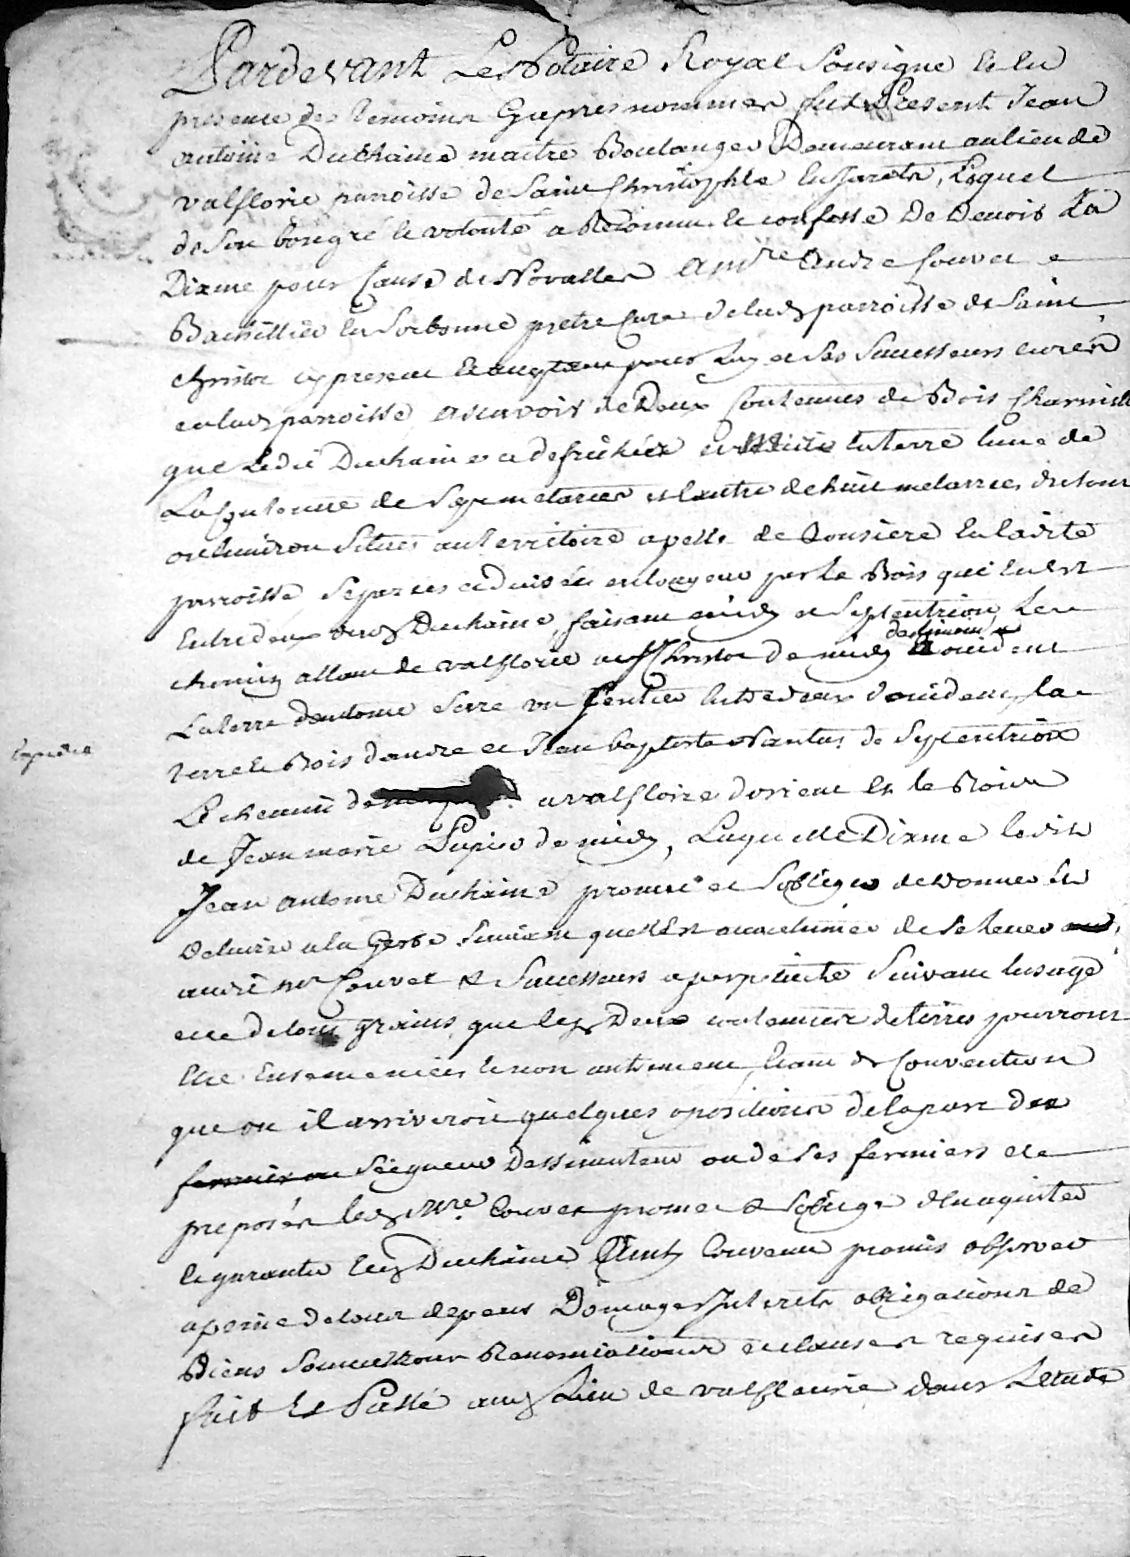 Pardevant Le Notaire Royal Sousigne Et En
presence des temoins Cyapres nommes fut Present Jean
antoine Duchaine maitre Boulanger Demeurant au lieu de
valflorie parroisse de Saint Christophle en Jarets, Lequel
de Son bon gré et volonté a Reconnu et confesse De Devoir La
Dixme pour Cause de Novalles a Mre André Couvet
Bachillier En Sorbonne pretre Curé de lad parroisse de Saint
christo cy present et acceptant pour Luy et Ses Successeurs curés
en lad parroisse, ascavoir de Deux Contenues de Bois Charmille
que Ledit Duchaine a defrichées et en terre lune de
La Contenue de Sept metarées et lautre de huit metarrées du tout
ou Environ Situés au territoire apellé de en ladite
parroisse, Separées et divisées par le Bois qui En Est
Entredeux dud Duchaine, faisant midy et Septentrion, Le
chemin allant de valflorie a St Christo de midy occident
La terre dantoine Serre un Sentier Entredeux doccident, la
terre et Bois dandré et Jean baptiste de Septentrion
Le chemin de a valfloire dorient Et le Bois
de Jean marie Pupier de midy, Laquelle Dixme ledit
Jean antoine Duchaine promet et Soblige de donner et
delivrer a la Gerbe Suivant quelle Est accoutumée de Se lever
audit Mr Couvet & Successeurs a perpetuité Suivant lusage
et de tous grains, que lesd Deux contenues de terres pourront
Etre Ensemencées et non autrement, Etant de Convention
que ou il arriveroit quelques opositions de la part des
fermiers ou Seigneur Dessinateur ou de Ses fermiers et
preposés led Mre Couvet promet & Soblige den aquitter
et garantir led Duchaine Ainsy Convenu promis observer
a peine de tous depens Domages Interets obligations de
Biens Soumissions Renonciations et clauses requises
fait Et Passé aud Lieu de valfleurie dans Letude